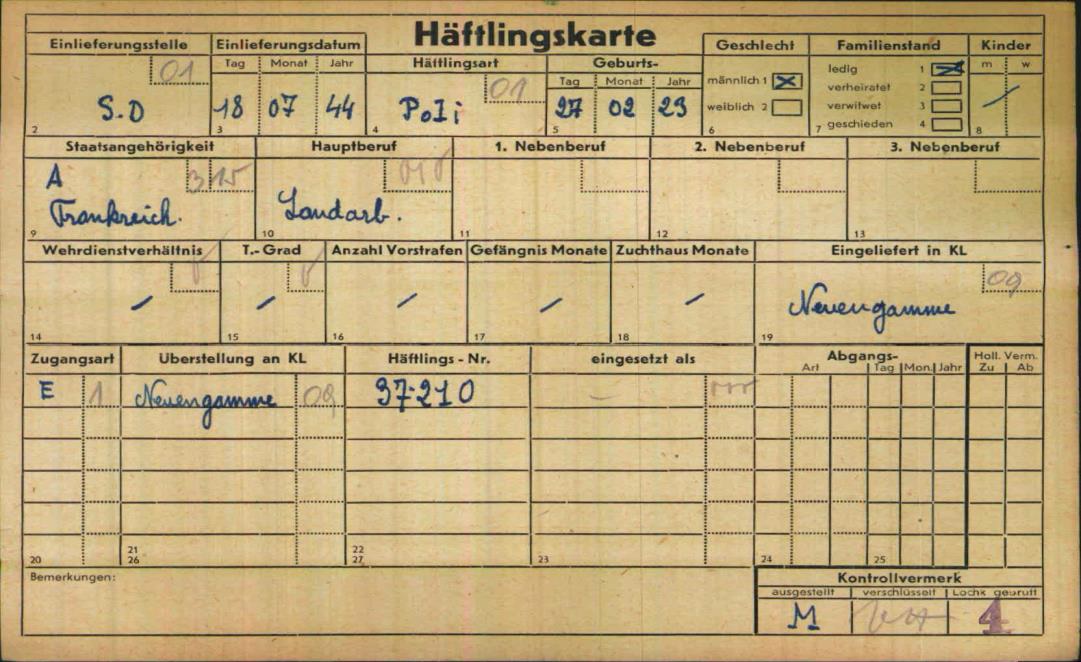 Häftlingskarte
Einlieferungsstelle
01
S.D
2
Einlieferungsdatum
Tag Monat Jahr
18 07 44
3
Häftlingsart
01
Poli
4
Geburts-
Tag Monat Jahr
27 02 23
5
Geschlecht
männlich 1
weiblich 2
6
Familienstand
ledig 1
verheiratet 2
verwitwet 3
geschieden 4
7
Kinder
m w
8
Staatsangehörigkeit
A 315
Frankreich.
9
Hauptberuf
Landarb.
10
1. Nebenberuf
11
2. Nebenberuf
12
3. Nebenberuf
13
Wehrdienstverhältnis
14
T.-Grad
15
Anzahl Vorstrafen
16
Gefängnis Monate
17
Zuchthaus Monate
18
Eingeliefert in KL
09
Neuengamme
19
Zugangsart Überstellung an KL Häftlings-Nr. eingesetzt als
E 1 Neuengamme 09 37·210 —
20
21
26
22
27
23
Abgangs-
Art Tag Mon. Jahr
24 25
Holl. Verm.
Zu Ab
Bemerkungen:
Kontrollvermerk
ausgestellt verschlüsselt Lochk geprüft
M 4